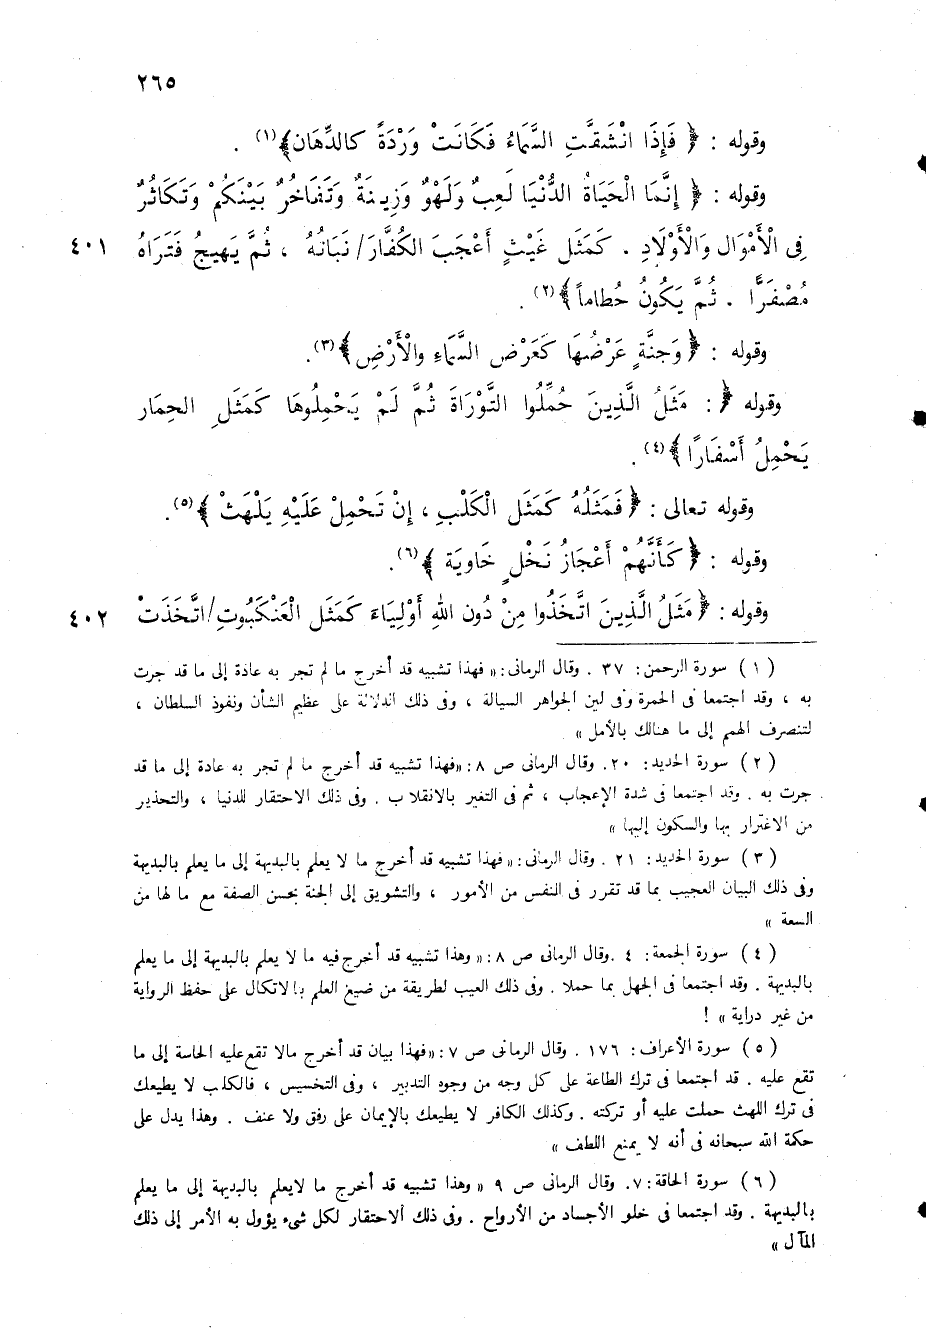 ٢٦٥
وقوله : ﴿ فَإِذَا انْشَقَّتِ السَّمَاءُ فَكَانَتْ وَرْدَةً كالدِّهَان﴾(١) .
وقوله : ﴿ إِنَّمَا الْحَيَاةُ الدُّنْيَا لَعِبٌ وَلَهْوٌ وَزِينَةٌ وَتَفَاخُرٌ بَيْنَكُمْ وَتَكَاثُرٌ
فِى الْأَمْوَالِ وَالْأَوْلَادِ . كَمَثَلِ غَيْثٍ أَعْجَبَ الكُفَّارَ/ نَبَاتُهُ ، ثُمَّ يَهِيجُ فَتَرَاهُ ٤٠١
مُصْفَرًّا . ثُمَّ يَكُونُ حُطاماً﴾(٢) .
وقوله : ﴿ وَجنَّةٍ عَرْضُهَا كَعَرْضِ السَّمَاءِ والْأَرْضِ﴾(٣).
وقوله ﴿ : مَثَلُ الَّذِينَ حُمِّلُوا التَّوْرَاةَ ثُمَّ لَمْ يَحْمِلُوهَا كَمَثَلِ الحِمَار
يَحْمِلُ أَسْفَارًا ﴾(٤) .
وقوله تعالى : ﴿ فَمَثَلُهُ كَمَثَلِ الْكَلْبِ ، إِنْ تَحْمِلْ عَلَيْهِ يَلْهَثْ ﴾(٥).
وقوله : ﴿ كَأَنَّهُمْ أَعْجَازُ نَخْلٍ خَاوِيَة ﴾(٦).
وقوله : ﴿ مَثَلُ الَّذِينَ اتَّخَذُوا مِنْ دُونِ اللهِ أَوْلِيَاءَ كَمَثَلِ الْعَنْكَبُوتِ/اتَّخَذَتْ ٤٠٢
(١) سورة الرحمن: ٣٧ . وقال الرمانى: « فهذا تشبيه قد أخرج ما لم تجر به عادة إلى ما قد جرت
به ، وقد اجتمعا فى الحمرة وفى لين الجواهر السيالة ، وفى ذلك الدلالة على عظيم الشأن ونفوذ السلطان ،
لتنصرف الهمم إلى ما هنالك بالأمل »
(٢) سورة الحديد: ٢٠. وقال الرمانى ص ٨: «فهذا تشبيه قد أخرج ما لم تجر به عادة إلى ما قد
جرت به . وقد اجتمعا فى شدة الإعجاب ، ثم فى التغير بالانقلاب . وفى ذلك الاحتقار للدنيا ، والتحذير
من الاغترار بها والسكون إليها »
(٣) سورة الحديد: ٢١ . وقال الرمانى: « فهذا تشبيه قد أخرج ما لا يعلم بالبديهة إلى ما يعلم بالبديهة
وفى ذلك البيان العجيب بما قد تقرر فى النفس من الأمور ، والتشويق إلى الجنة بحسن الصفة مع ما لها من
السعة »
(٤) سورة الجمعة: ٤ .وقال الرمانى ص ٨: « وهذا تشبيه قد أخرج فيه ما لا يعلم بالبديهة إلى ما يعلم
بالبديهة . وقد اجتمعا فى الجهل بما حملا . وفى ذلك العيب لطريقة من ضيع العلم بالاتكال على حفظ الرواية
من غير دراية » !
(٥) سورة الأعراف: ١٧٦ . وقال الرمانى ص ٧: «فهذا بيان قد أخرج مالا تقع عليه الحاسة إلى ما
تقع عليه . قد اجتمعا فى ترك الطاعة على كل وجه من وجوه التدبير ، وفى التخسيس ، فالكلب لا يطيعك
فى ترك اللهث حملت عليه أو تركته . وكذلك الكافر لا يطيعك بالإيمان على رفق ولا عنف . وهذا يدل على
حكمة الله سبحانه فى أنه لا يمنع اللطف »
(٦) سورة الحاقة: ٧. وقال الرمانى ص ٩ « وهذا تشبيه قد أخرج ما لايعلم بالبديهة إلى ما يعلم
بالبديهة . وقد اجتمعا فى خلو الأجساد من الأرواح . وفى ذلك الاحتقار لكل شىء يؤول به الأمر إلى ذلك
المآل »